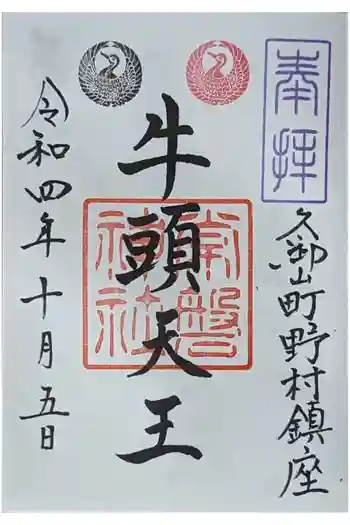 奉拝
久御山町野村鎮座
牛頭天王
常盤神社
令和四年十月五日